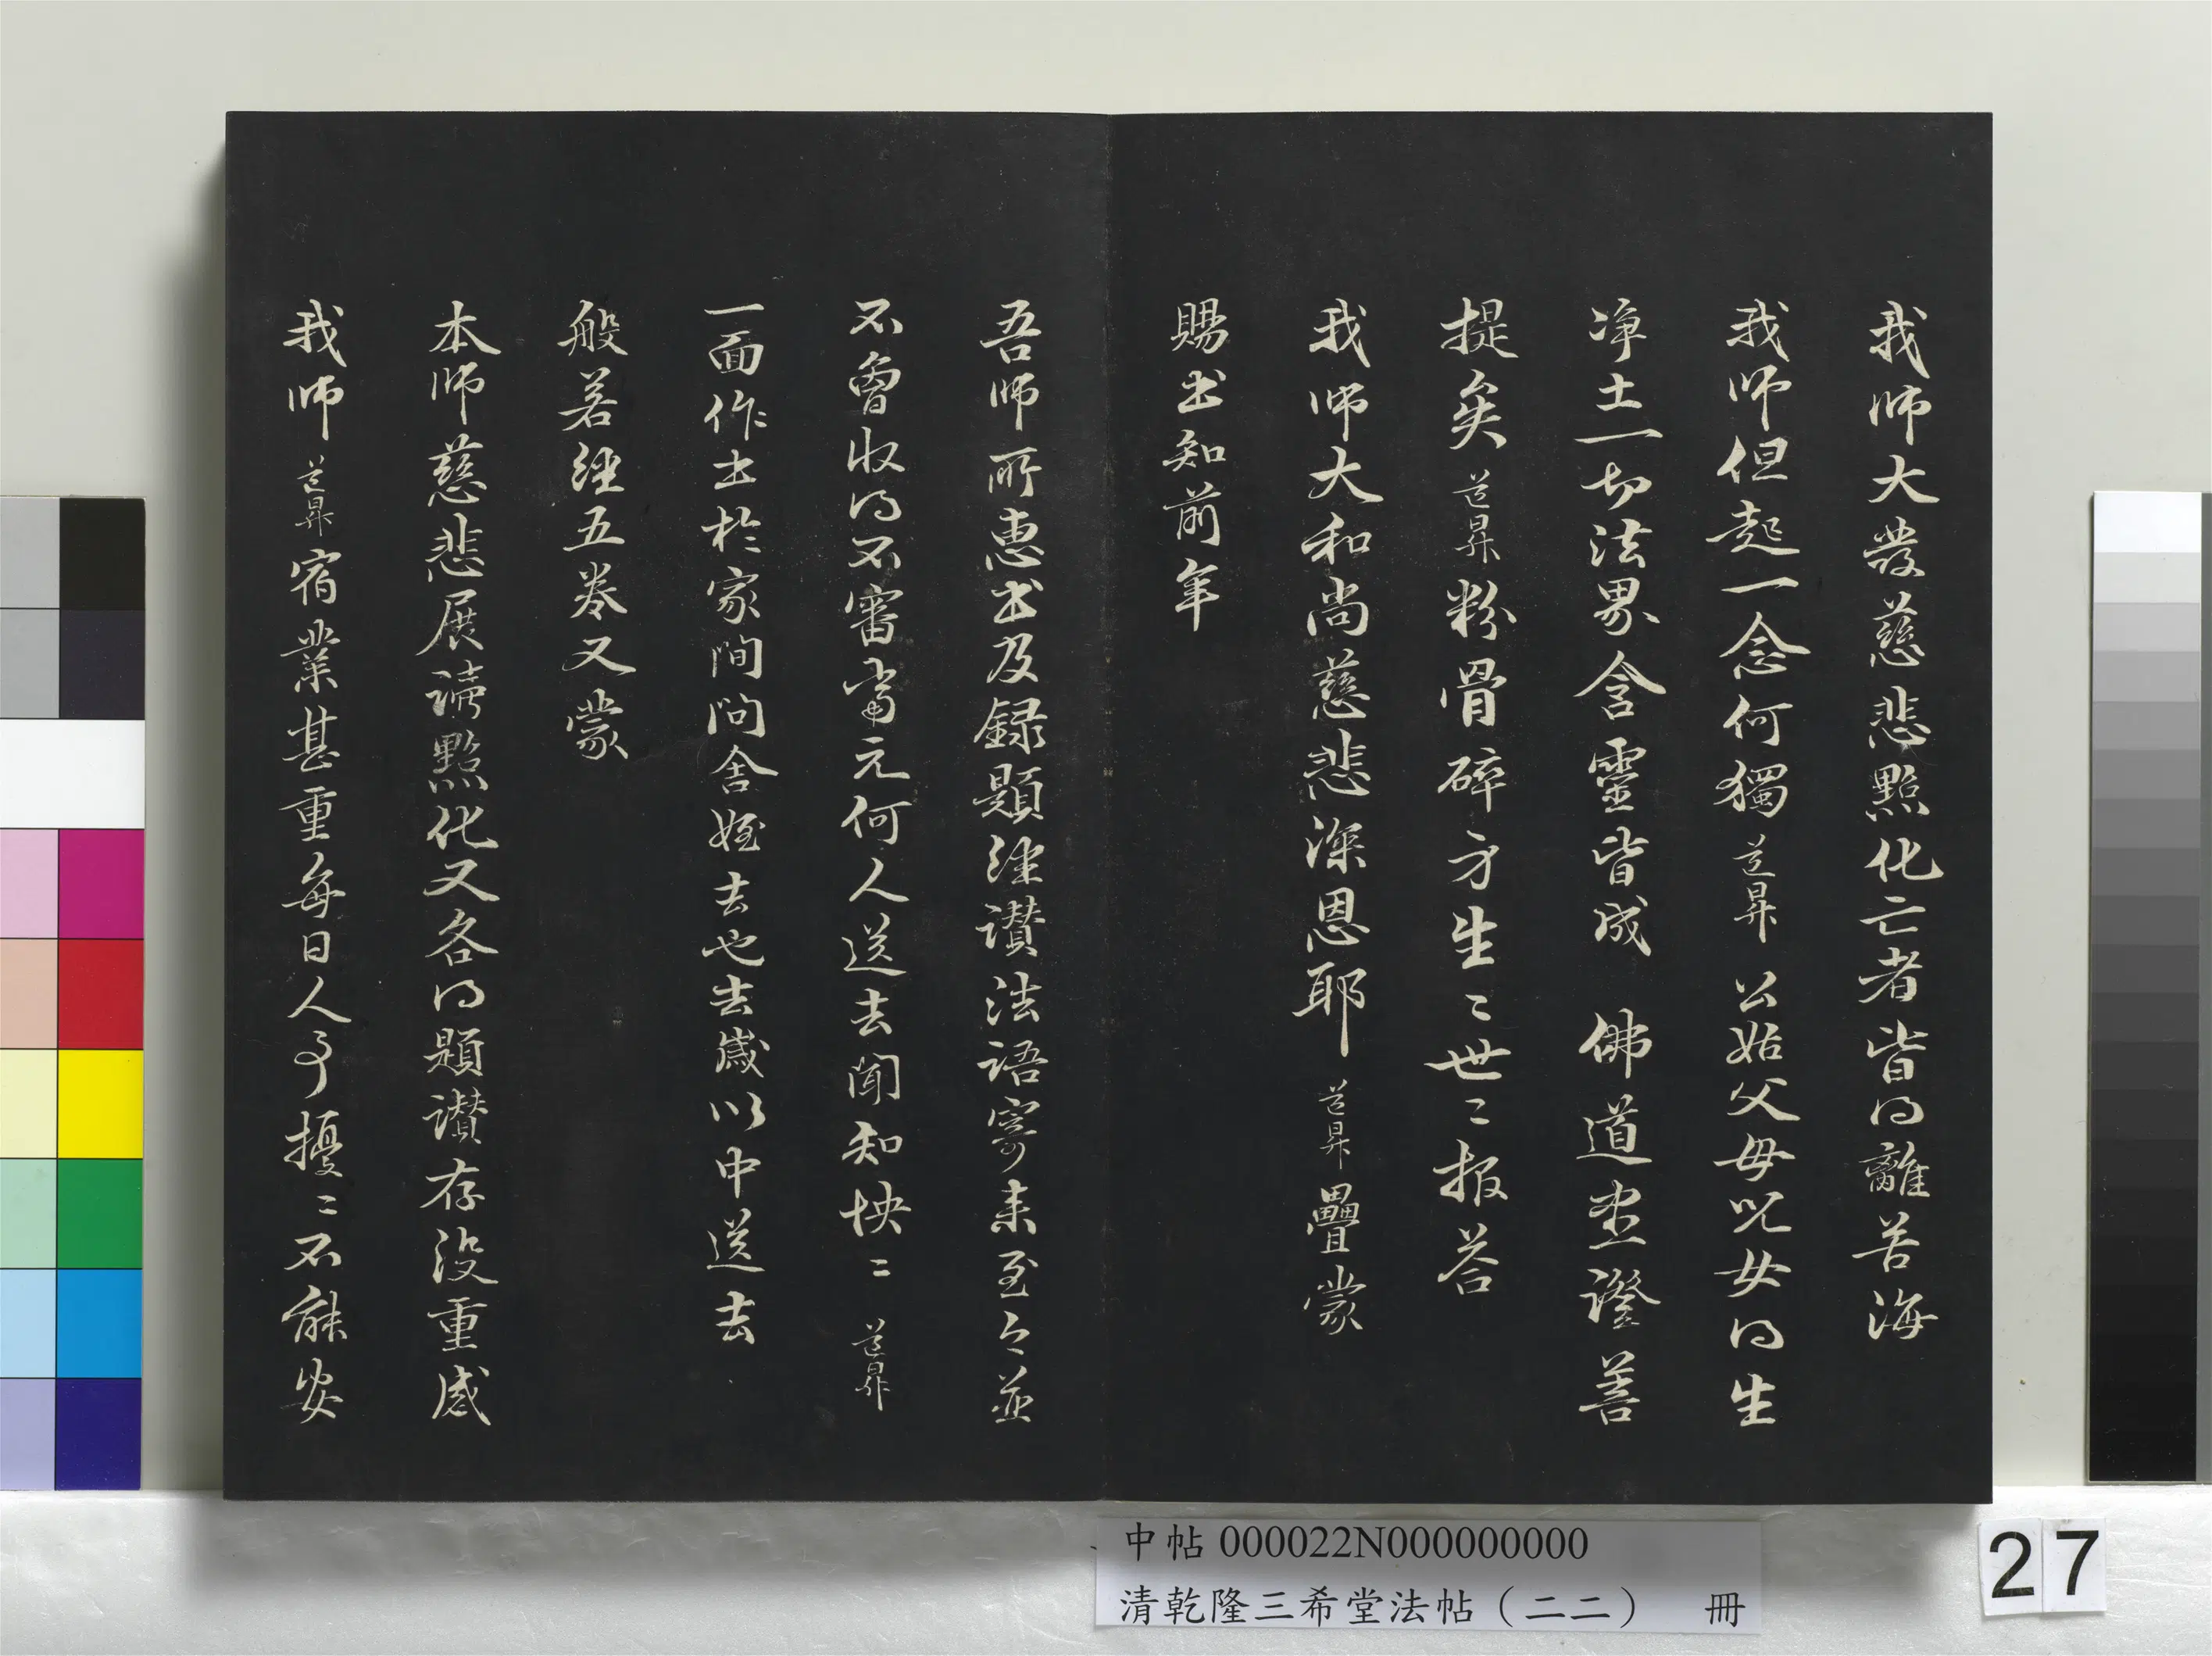 我師大發慈悲點化亡者皆得離苦海
我師但起一念何獨道昇公姑父母兒女得生
淨土一切法界含靈皆成佛道盡證菩
提矣道昇粉骨碎身生〻世〻報荅
我師大和尚慈悲深恩耶道昇疊蒙
賜書知前年
吾師所惠書及録題經讃法語寄来至今並
不曾收得不審當元何人送去聞知怏〻道昇
一面作書於家間問舍姪去也去歲以中送去
般若經五卷又蒙
本師慈悲展讀點化又各得題讃存没重感
我師道昇宿業甚重每日人事擾〻不能安
中帖 000022N000000000
清乾隆三希堂法帖（二二） 冊
27